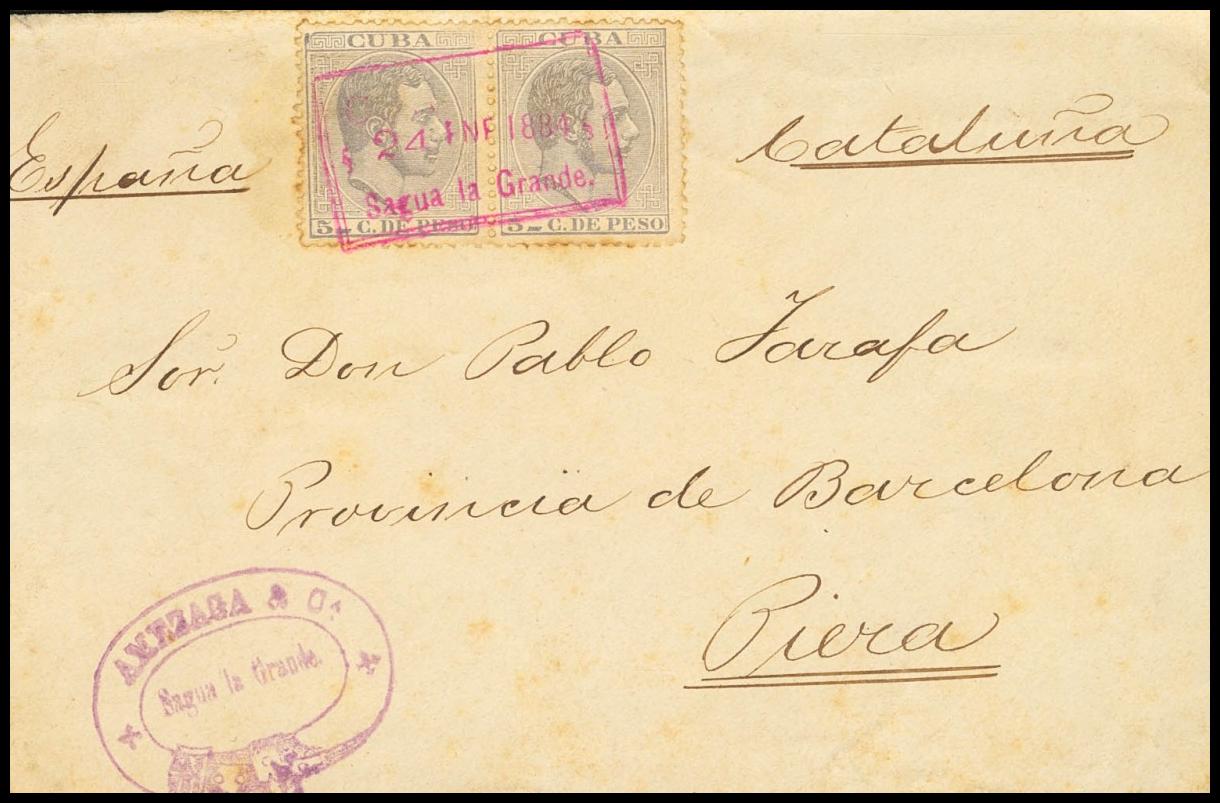 CUBA CUBA
24 ENE 1884
Sagua la Grande.
5 C. DE PESO 5 C. DE PESO
España Cataluña
Sor. Don Pablo Tarafa
Provincia de Barcelona
Piera
AMEZAGA & Ca.
Sagua la Grande.